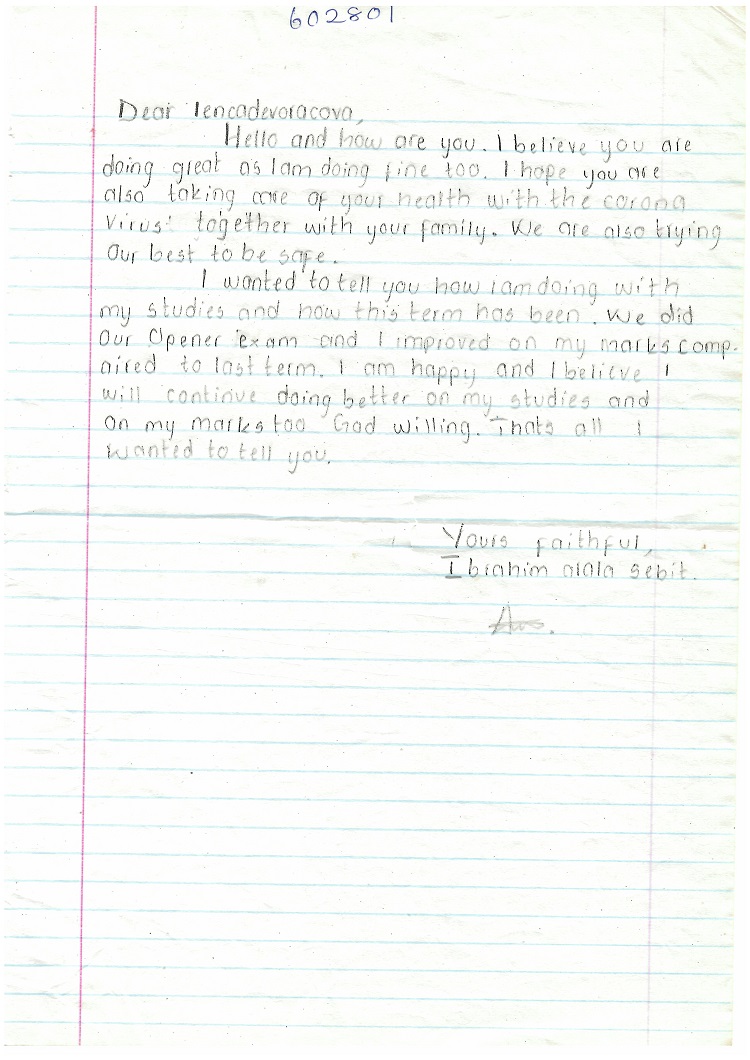 602801
Dear lencadevoracova,
Hello and how are you. I believe you are
doing great as Iam doing fine too. I hope you are
also taking care of your health with the corona
Virus: together with your family. We are also trying
Our best to be safe.
I wanted to tell you how iam doing with
my studies and how this term has been. We did
Our Opener Exam and I improved on my marks comp-
aired to last term. I am happy and I believe I
will continue doing better on my studies and
On my marks too God willing. Thats all I
wanted to tell you.
Yours faithful,
Ibrahim alala sebit.